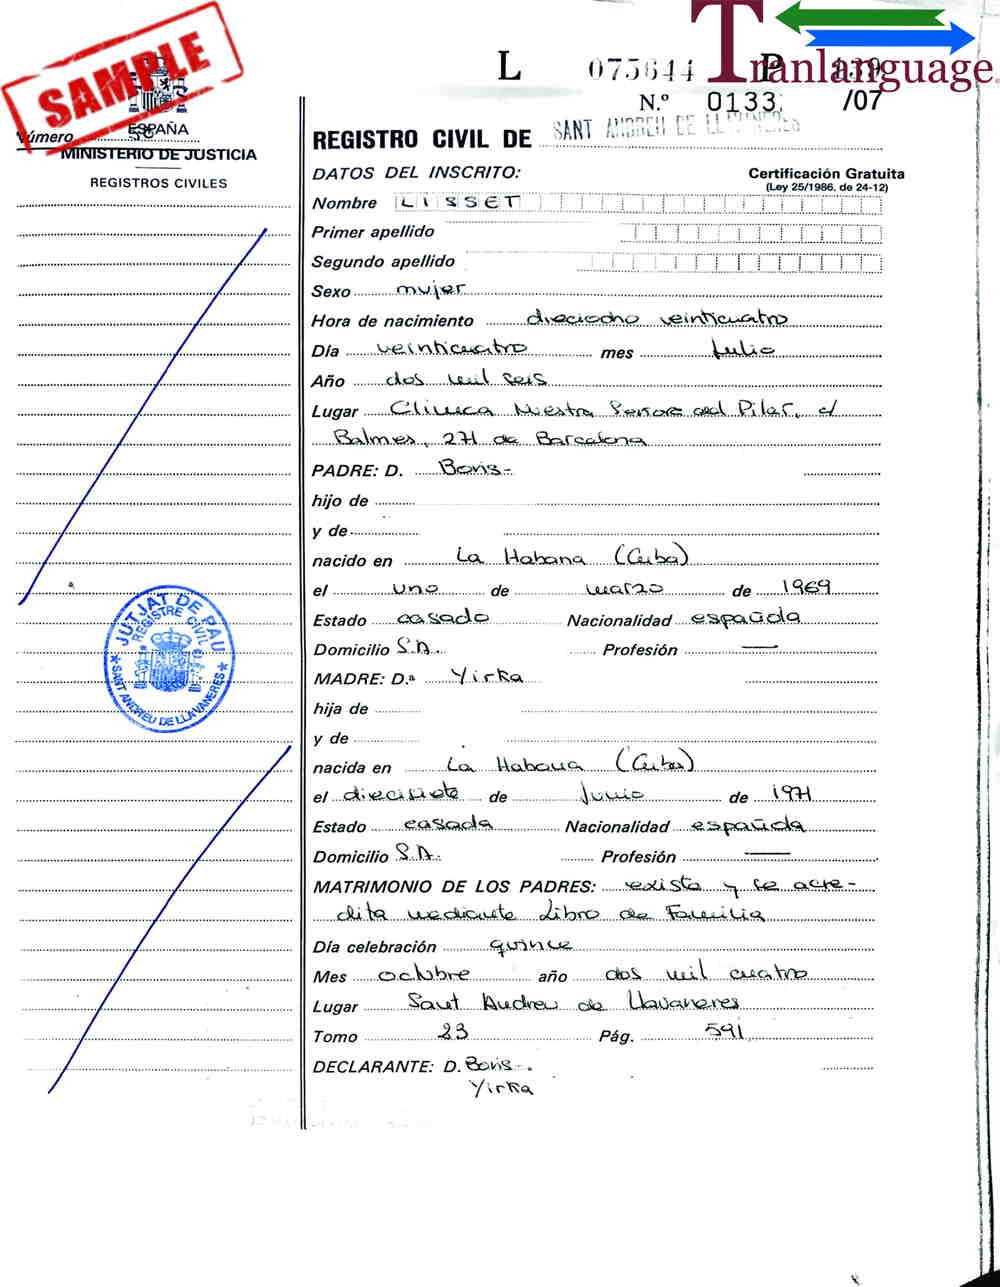 SAMPLE
Tranlanguage
L 075644 P
N.º 0133 /07
Número 58
ESPAÑA
MINISTERIO DE JUSTICIA
REGISTROS CIVILES
REGISTRO CIVIL DE SANT ANDREU DE LLAVANERES
DATOS DEL INSCRITO:
Certificación Gratuita
(Ley 25/1986, de 24-12)
Nombre LISSET
Primer apellido
Segundo apellido
Sexo mujer
Hora de nacimiento dieciocho veinticuatro
Día veinticuatro mes Julio
Año dos mil seis
Lugar Clínica Nuestra Señora del Pilar, c/
Balmes, 271 de Barcelona
PADRE: D. Boris-
hijo de
y de
nacido en La Habana (Cuba)
el uno de marzo de 1969
Estado casado Nacionalidad española
Domicilio S.A. Profesión —
MADRE: D.ª Yirka
hija de
y de
nacida en La Habana (Cuba)
el diecisiete de Junio de 1971
Estado casada Nacionalidad española
Domicilio S.A. Profesión —
MATRIMONIO DE LOS PADRES: existe y se acre-
dita mediante Libro de Familia
Día celebración quince
Mes octubre año dos mil cuatro
Lugar Sant Andreu de Llavaneres
Tomo 23 Pág. 591
DECLARANTE: D. Boris-
Yirka
JUTJAT DE PAU
REGISTRE CIVIL
SANT ANDREU DE LLAVANERES